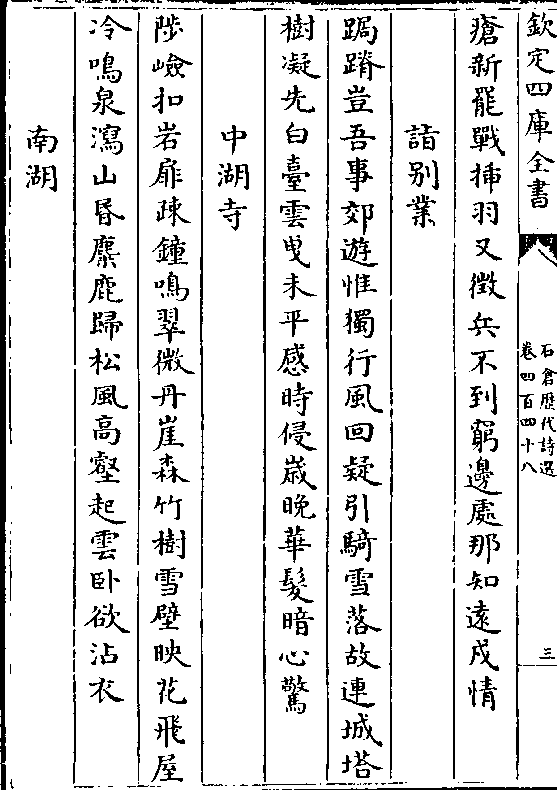 欽定四庫全書
石倉歷代詩選
卷四百四十八
三
瘡新罷戰揷羽又徵兵不到窮邊處那知遠戍情
詣别業
跼蹐豈吾事郊遊惟獨行風回疑引騎雪落故連城塔
樹凝先白臺雲曳未平感時侵嵗晚華髮暗心驚
中湖寺
陟嶮扣岩扉疎鐘鳴翠微丹崖森竹樹雪壁映花飛屋
冷鳴泉瀉山昏麋鹿歸松風高壑起雲卧欲沾衣
南湖